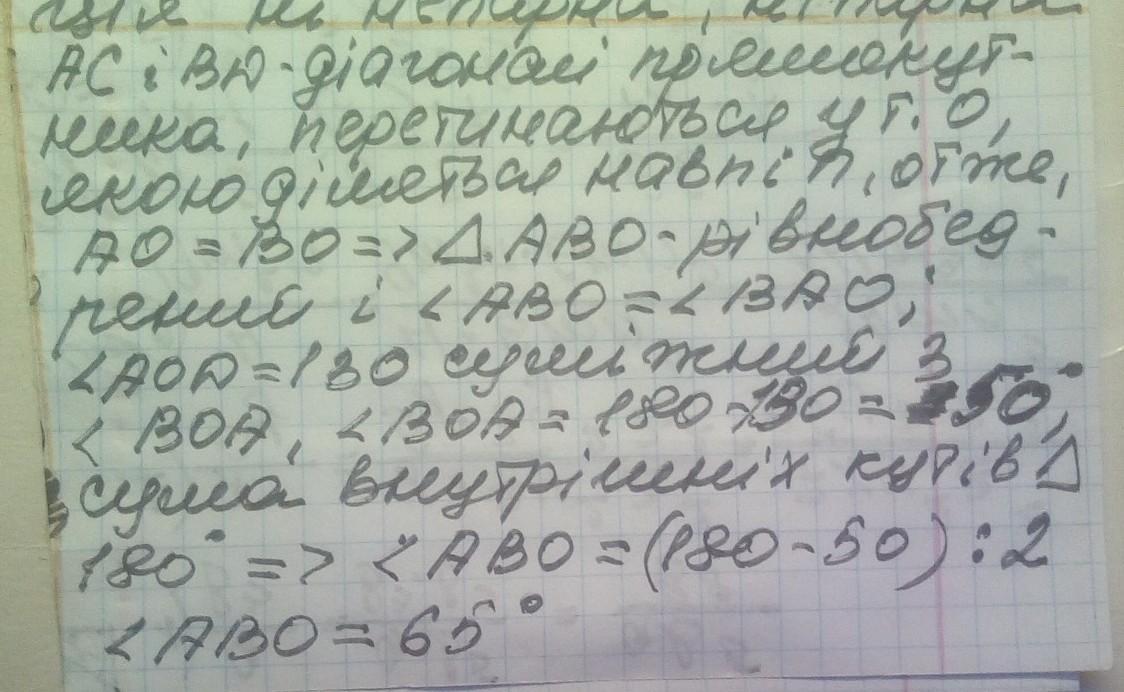 ція
AC і BD - діагоналі прямокут-
ника, перетинаються у т. O,
якою діляться навпіл, отже,
AO = BO => Δ ABO - рівнобед-
рений і <ABO = <BAO;
<AOD = 130 суміжний з
< BOA, <BOA = 180 - 130 = 50°,
сума внутрішніх кутів Δ
180° => <ABO = (180 - 50) : 2
<ABO = 65°